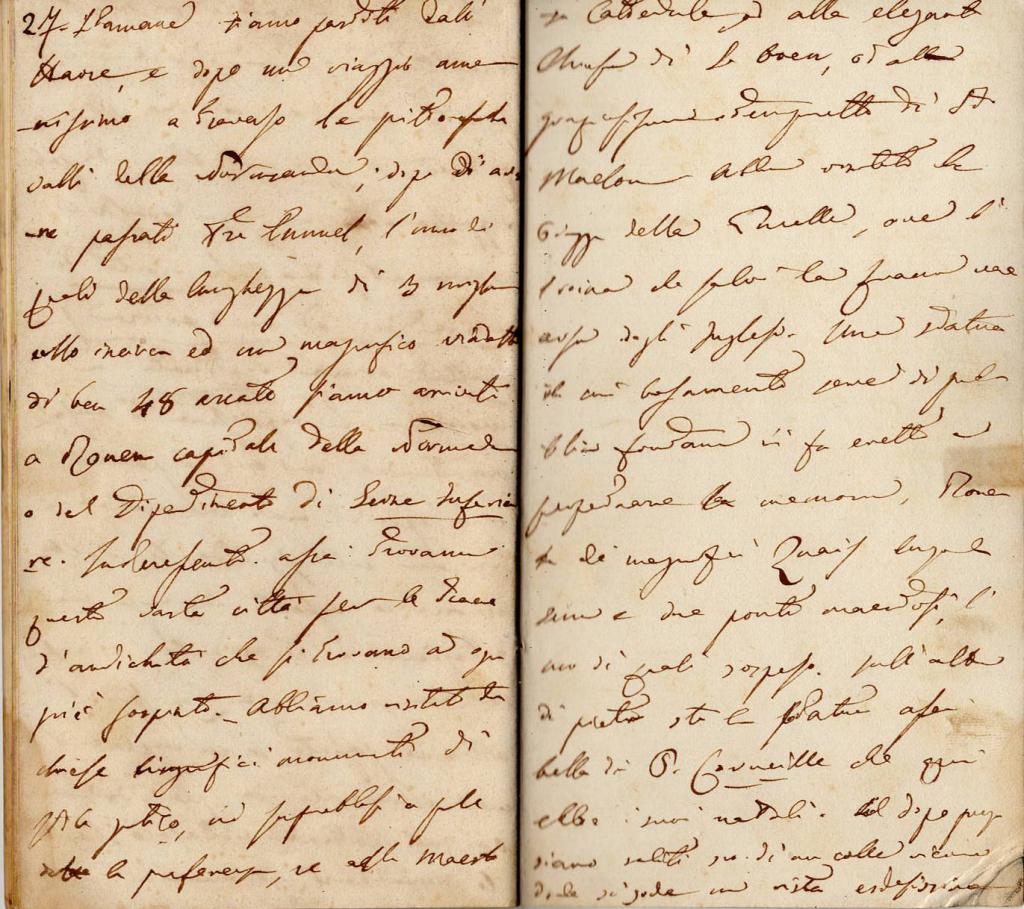 27. Stamane siamo partiti dall'
Havre, e dopo un viaggio ame-
nissimo a traverso le pittoresche
valli della Normandia, dopo di ave-
re passati tre tunnel, l'uno dei
quali della lunghezza di 3 miglia
ed un magnifico viadotto
di ben 48 arcate siamo arrivati
a Rouen capitale della Normandia
o del Dipartimento di Seine Inferieu-
re. Interessante assai troviamo
questa vasta città per le tracce
d'antichità che si trovano ad ogni
piè sospinto. Abbiamo visitato tre
chiese magnifici monumenti di
stile gotico, ed
la preferenza, se alla Maest
Cattedrale od alla elegante
Chiesa di St Ouen, od alla
di St
Maclou. Abbiam visitato la
Piazza della Pucelle, ove l'
eroina che salvò la Francia venne
arsa dagli Inglesi. Una statua
il cui basamento serve di pub-
blica fontana vi fu eretta a
perpetuarne la memoria. Rouen
ha dei magnifici Quais lungo la
Senna e due ponti maestosi, l'
uno di quali sospeso. Sull'altro
di pietra sta la statua assai
bella di P. Corneille che quivi
ebbe i suoi natali. Dopo pranzo
siamo saliti su di un colle vicino
donde si gode una vista estesissima